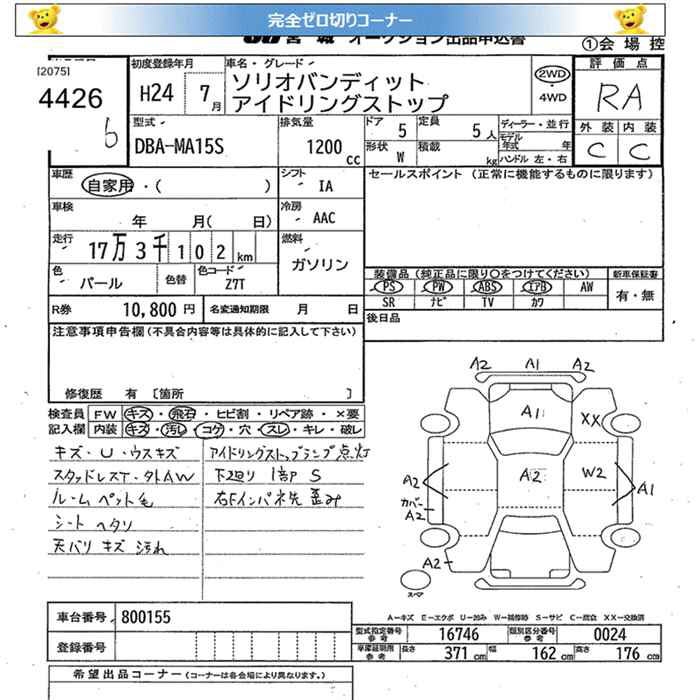 完全ゼロ切りコーナー
JU宮城 オークション出品申込書
①会場控
[2075]
4426
6
初度登録年月
H24 7月
車名・グレード
ソリオバンディット
アイドリングストップ
2WD
・
4WD
評価点
RA
外装 内装
C C
型式
DBA-MA15S
排気量
1200cc
ドア 5
定員 5人
形状 W
積載 kg
ディーラー・並行
モデル年式 年
ハンドル 左・右
車歴
自家用・( )
シフト
IA
セールスポイント (正常に機能するものに限ります)
車検
年 月( 日)
冷房
AAC
走行
17万3千102km
燃料
ガソリン
色
パール
色替
色コード
Z7T
装備品 (純正品に限り○をつけてください)
PS PW ABS エアB AW
SR ナビ TV カワ
新車保証書
有・無
R券 10,800円
名変通知期限 月 日
後日品
注意事項申告欄 (不具合内容等は具体的に記入して下さい)
修復歴 有 〔箇所 〕
検査員 FW キズ・飛石・ヒビ割・リペア跡・×要
記入欄 内装 キズ・汚レ・コゲ・穴・スレ・キレ・破レ
キズ・U・ウスキズ
アイドリングストップランプ点灯
スタッドレスT・外AW
下廻り 1部 S
ルーム ペット毛
右Fインパネ先 歪み
シート ヘタリ
天バリ キズ 汚れ
A2 A1 A2
A1
XX
A2
W2
A2
A1
カバー
A2
A2
スペア
A=キズ E=エクボ U=凹み W=補修跡 S=サビ C=腐食 XX=交換済
車台番号 800155
登録番号
型式指定番号 参考 16746
類別区分番号 参考 0024
車庫証明用 参考 長さ 371cm 幅 162cm 高さ 176cm
希望出品コーナー (コーナーは各会場により異なります。)